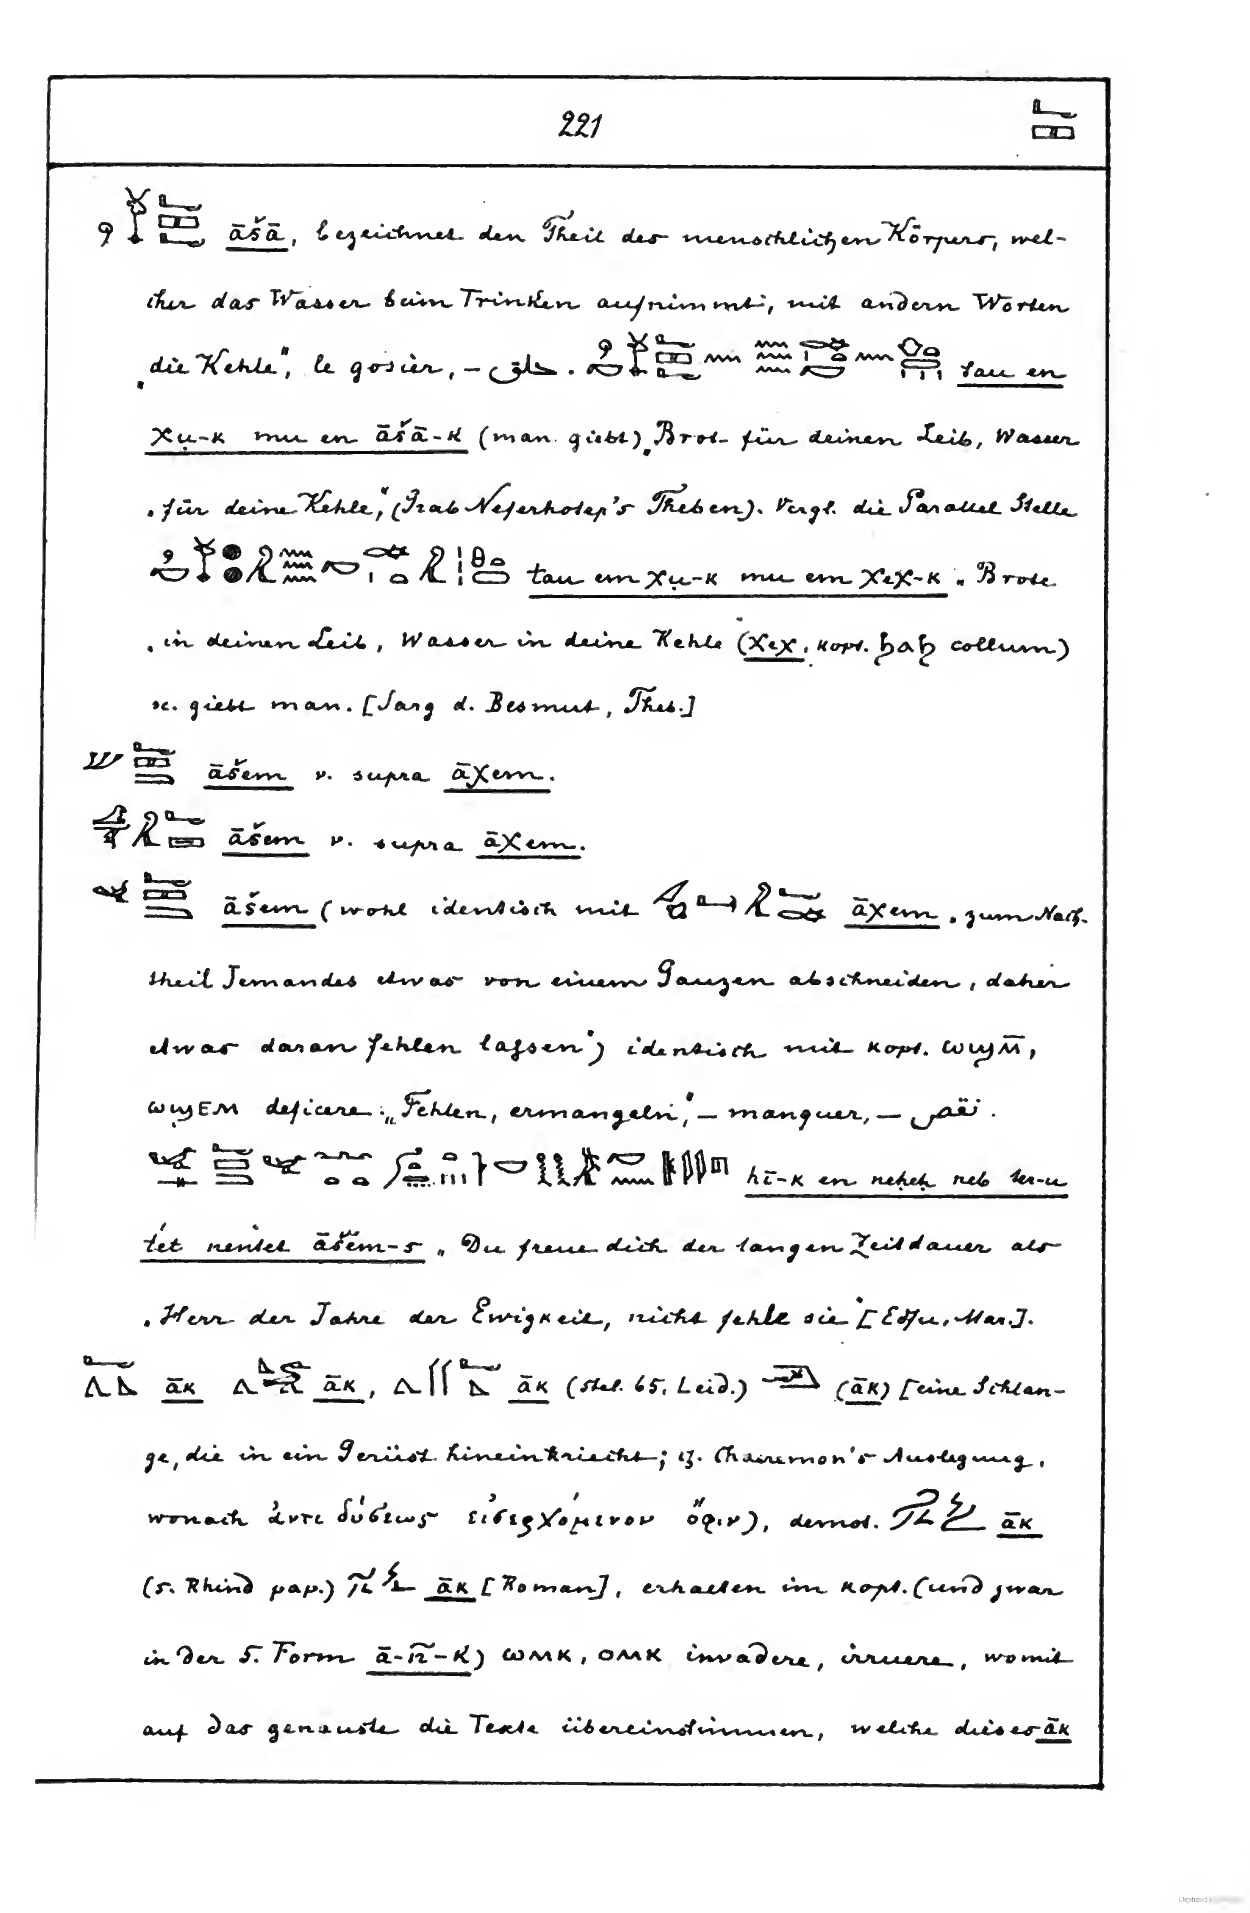 221
āšā, bezeichnet den Theil des menschlichen Körpers, wel-
cher das Wasser beim Trinken aufnimmt, mit andern Worten
„die Kehle", le gosier, – حلق . tau en
χu̩-k mu en āšā-k (man giebt) „Brot für deinen Leib, Wasser
„für deine Kehle," (Grab Neferhotep's Theben). Vergl. die Parallel Stelle
tau em χu̩-k mu em χeχ-k „Brote
„in deinen Leib, Wasser in deine Kehle (χeχ, kopt. ϧⲁϧ collum)
sc. giebt man. [Sarg d. Besmut, Theb.]
āšem v. supra āχem.
āšem v. supra āχem.
āšem (wohl identisch mit āχem „zum Nach-
theil Jemandes etwas von einem Ganzen abschneiden, daher
etwas daran fehlen lassen") identisch mit kopt. ⲱϣⲙ̄,
ⲱϣⲉⲙ deficere „Fehlen, ermangeln", – manquer, – نقص .
hī-k en neḥeḥ neb ter-u
t́et nentet āšem-s „Du freue dich der langen Zeitdauer als
„Herr der Jahre der Ewigkeit, nicht fehle sie" [Edfu, Mar.].
āk āk, āk (Stel. 65. Leid.) (āk) [eine Schlan-
ge, die in ein Gerüst hineinkriecht; cf. Chaeremon's Auslegung,
wonach ἀντὶ δύσεως εἰσερχόμενον ὄφιν), demot. āk
(s. Rhind pap.) āk [Roman], erhalten im kopt. (und zwar
in der S. Form ā-m̃-k) ⲱⲙⲕ, ⲟⲙⲕ invadere, irruere, womit
auf das genauste die Texte übereinstimmen, welche dieses āk